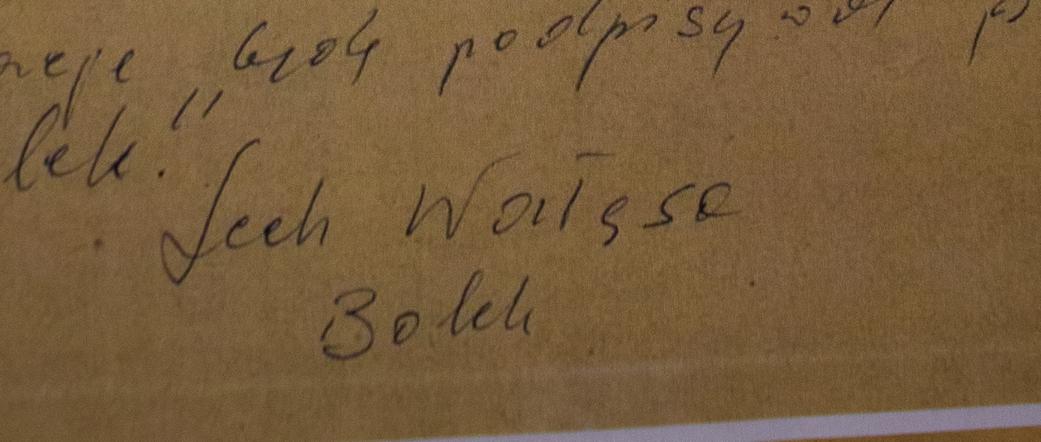 będę podpisywał
lek."
Lech Wałęsa
Bolek